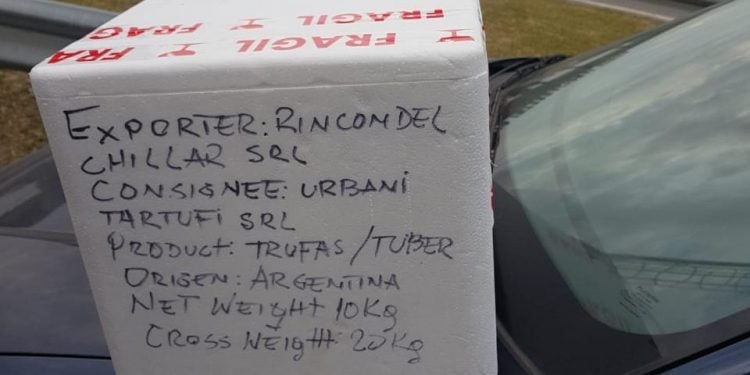 FRA FRAGIL FRAGIL
EXPORTER: RINCOMDEL
CHILLAR SRL
CONSIGNEE: URBANI
TARTUFI SRL
PRODUCT: TRUFAS/TUBER
ORIGEN: ARGENTINA
NET WEIGHT 10Kg
CROSS WEIGHT: 20Kg